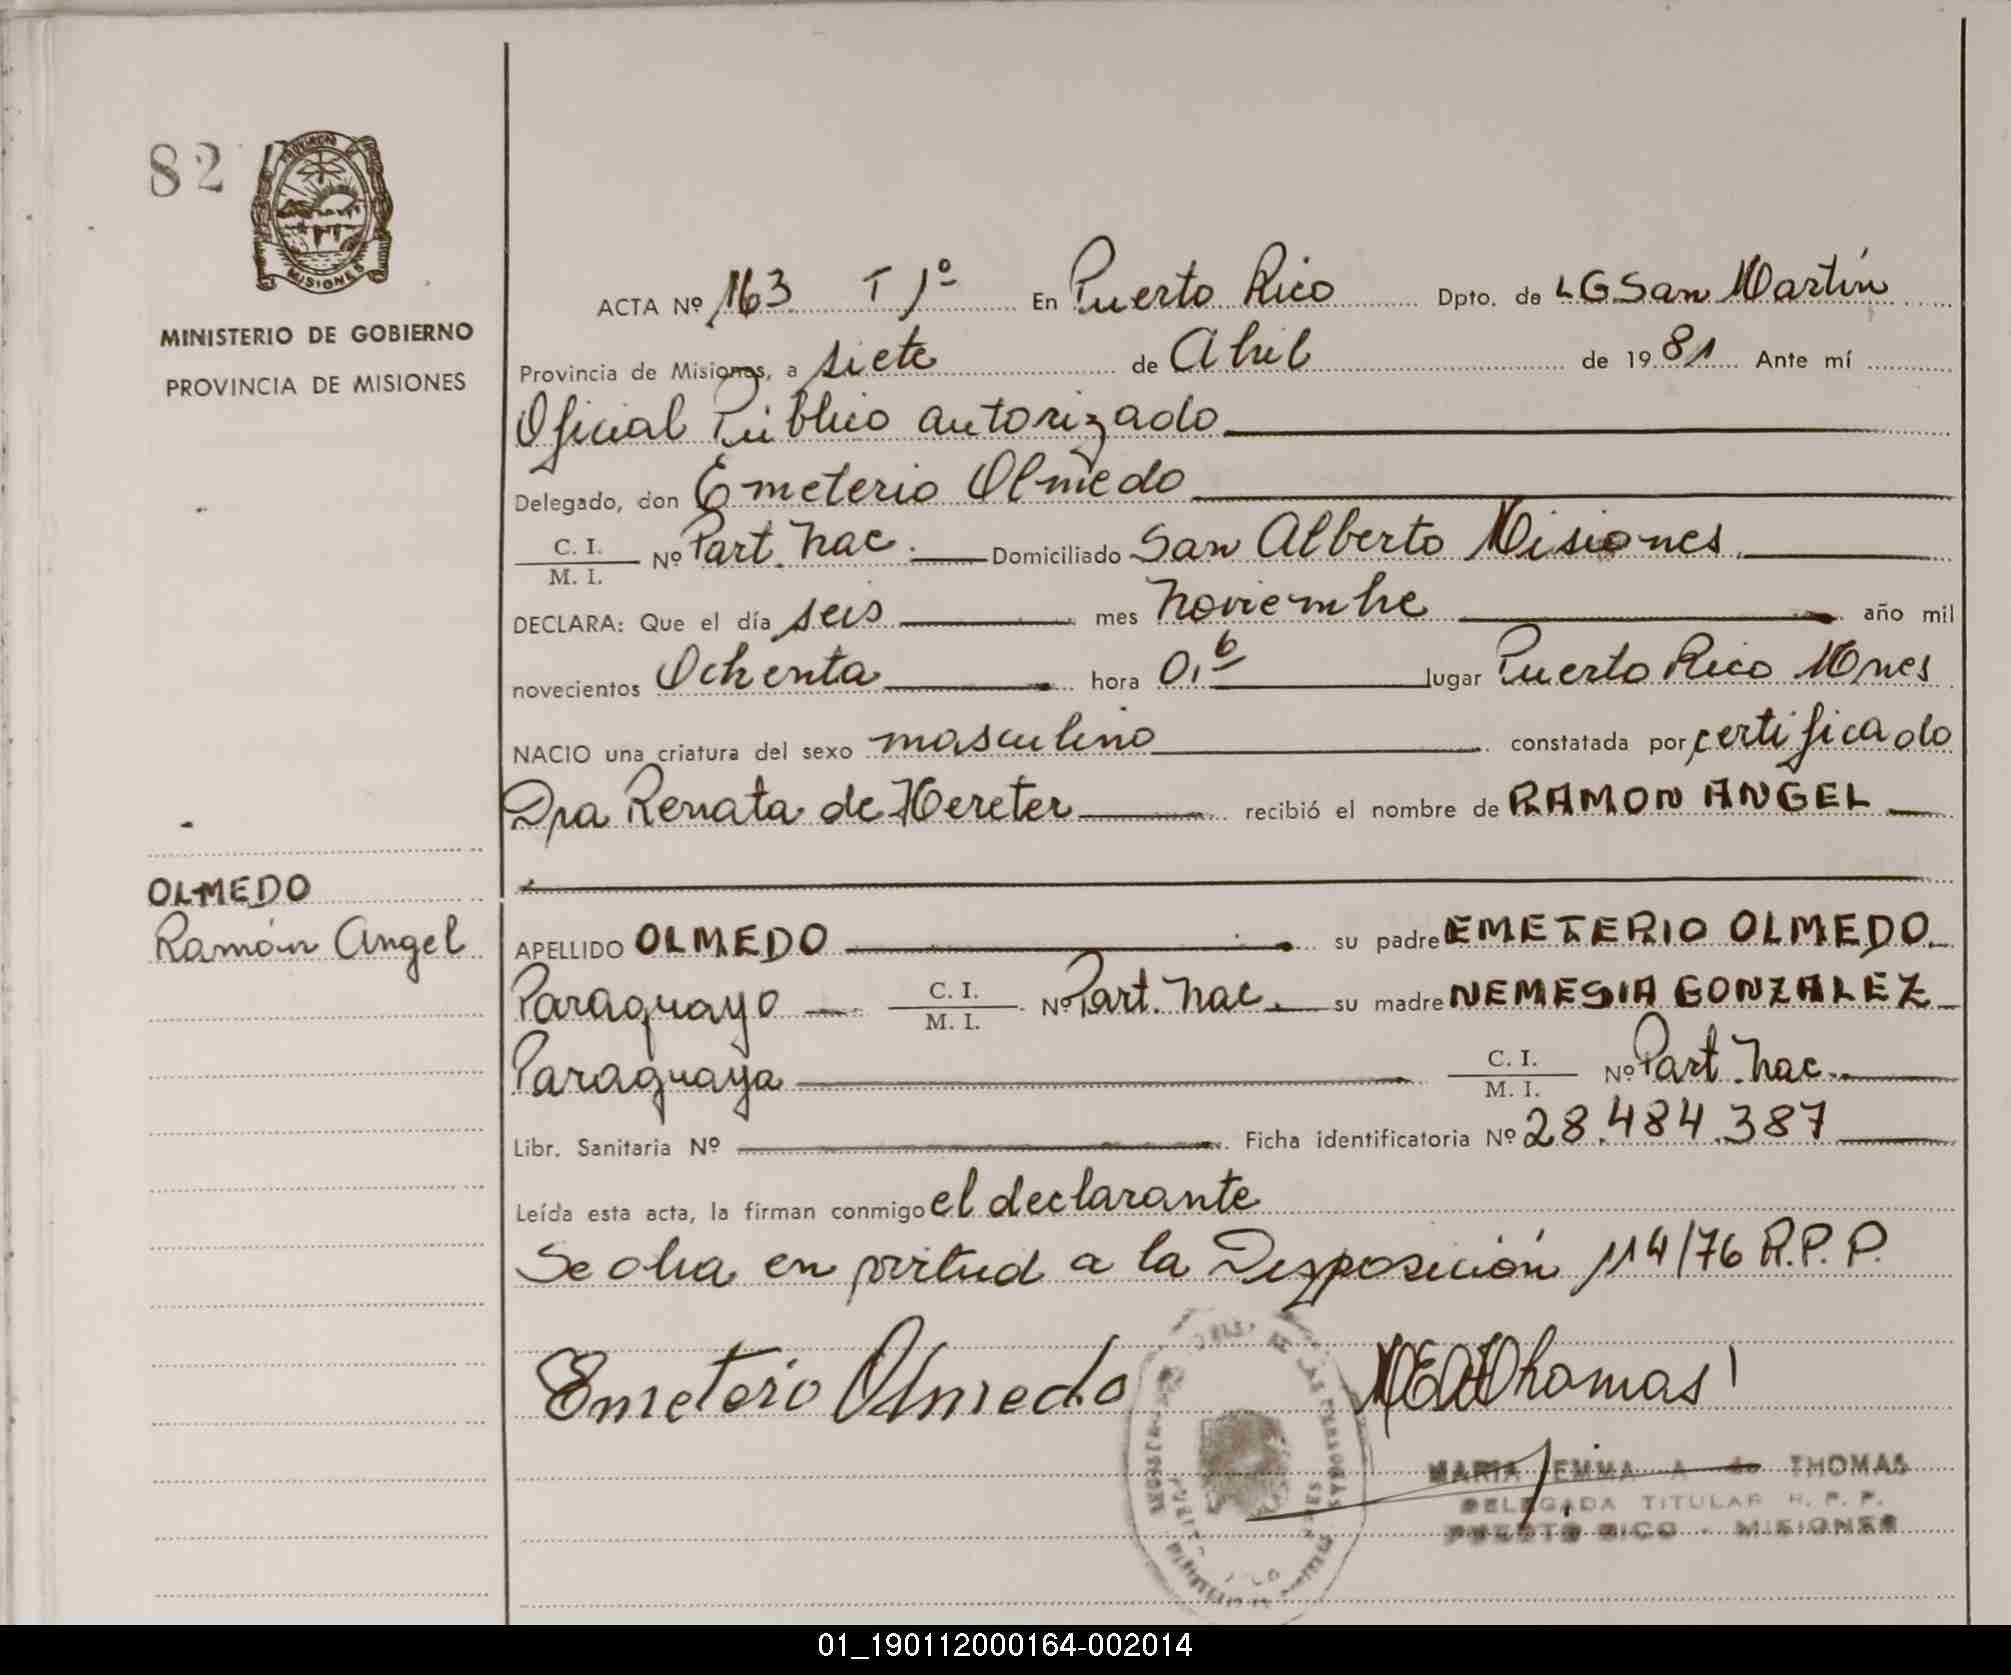 82
PROVINCIA DE
MISIONES
MINISTERIO DE GOBIERNO
PROVINCIA DE MISIONES
ACTA Nº 163 T 1º En Puerto Rico Dpto. de LG San Martín
Provincia de Misiones, a siete de Abril de 1981 Ante mí
Oficial Público autorizado
Delegado, don Emeterio Olmedo
C. I.
M. I. Nº Part. Nac. Domiciliado San Alberto Misiones
DECLARA: Que el día seis mes Noviembre año mil
novecientos Ochenta hora lugar Puerto Rico Mnes
NACIO una criatura del sexo masculino constatada por certificado
Dra Renata de Hereter recibió el nombre de RAMON ANGEL
OLMEDO
Ramón Angel
APELLIDO OLMEDO su padre EMETERIO OLMEDO
Paraguayo C. I.
M. I. Nº Part. Nac. su madre NEMESIA GONZALEZ
Paraguaya C. I.
M. I. Nº Part. Nac.
Libr. Sanitaria Nº Ficha identificatoria Nº 28.484.387
Leída esta acta, la firman conmigo el declarante
Se obra en virtud a la Disposición 114/76 R.P.P.
Emeterio Olmedo Thomas
MARIA EMMA A de THOMAS
DELEGADA TITULAR R. P. P.
PUERTO RICO - MISIONES
01_190112000164-002014